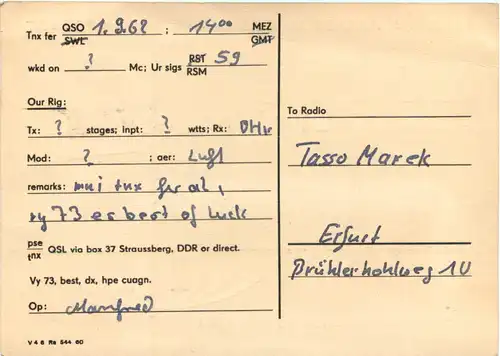 Tnx fer QSO 1.9.62 : 14⁰⁰ MEZ
SWL GMT
wkd on ? Mc; Ur sigs RST 59
RSM
Our Rig:
Tx: ? stages; inpt: ? wtts; Rx:
Mod: ? ; aer: Luft
remarks: mni tnx fer al,
vy 73 es best of luck
pse QSL via box 37 Straussberg, DDR or direct.
tnx
Vy 73, best, dx, hpe cuagn.
Op: Manfred
V 4 6 Rs 544 60
To Radio
Tasso Marek
Erfurt
Brühlerhohlweg 10